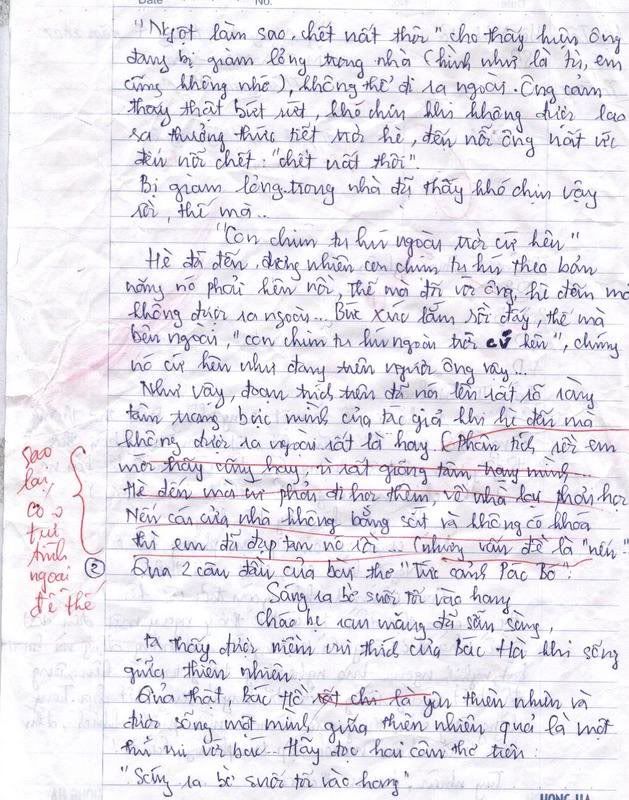 Date No.
"Ngột làm sao, chết uất thôi" cho thấy hiện ông
đang bị giam lỏng trong nhà (hình như là tù, em
cũng không nhớ), không thể đi ra ngoài. Ông cảm
thấy thật bứt rứt, khó chịu khi không được lao
ra thưởng thức tiết trời hè, đến nỗi ông uất ức
đến nỗi chết: "chết uất thôi".
Bị giam lỏng trong nhà đã thấy khó chịu vậy
rồi, thế mà...
"Con chim tu hú ngoài trời cứ kêu"
Hè đã đến, đương nhiên con chim tu hú theo bản
năng nó phải kêu rồi, thế mà đối với ông, hè đến mà
không được ra ngoài... Bực xúc lắm rồi đấy, thế mà
bên ngoài, "con chim tu hú ngoài trời cứ kêu", chúng
nó cứ kêu như đang trêu người ông vậy...
Như vậy, đoạn trích trên đã nói lên rất rõ ràng
tâm trạng bực mình của tác giả khi hè đến mà
không được ra ngoài rất là hay (Phân tích rồi em
mới thấy cũng hay, vì rất giống tâm trạng mình...
Hè đến mà cứ phải đi học thêm, về nhà lại phải học
Nếu cái cửa nhà không bằng sắt và không có khóa
thì em đã đạp tan nó rồi... (nhưng vấn đề là "nếu"...
sao
lại
có
tự
tình
ngoài
đề thế
② Qua 2 câu đầu của bài thơ "Tức cảnh Pác Bó":
Sáng ra bờ suối tối vào hang
Cháo bẹ rau măng đã sẵn sàng,
ta thấy được niềm vui thích của Bác Hồ khi sống
giữa thiên nhiên.
Quả thật, Bác Hồ rất chi là yêu thiên nhiên và
được sống một mình giữa thiên nhiên quả là một
thú vui với bác... Hãy đọc hai câu thơ trên:
"Sáng ra bờ suối tối vào hang"
HONG HA